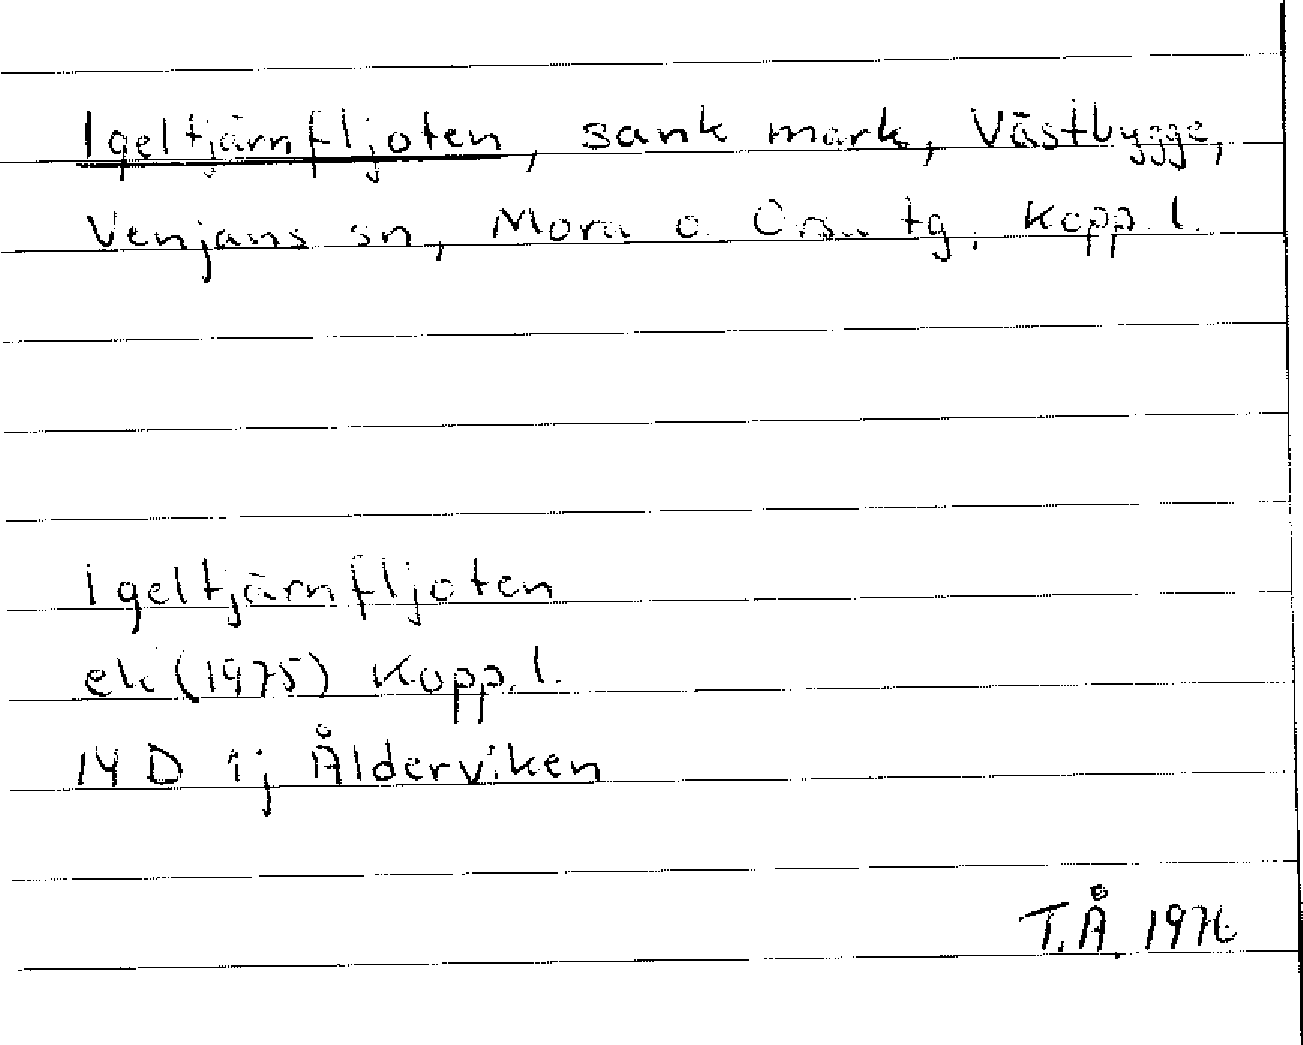 Igeltjärnfljoten, sank mark, Västbygge,
Venjans sn, Mora o. Orsa tg, Kopp. l.
Igeltjärnfljoten
ek (1975) Kopp. l.
14 D 1j Ålderviken
T.Å. 1976